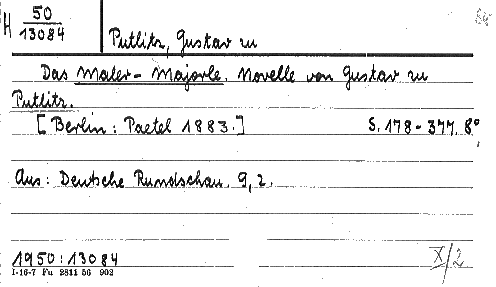 H 50
13084
Putlitz, Gustav zu
Das Maler-Majorle. Novelle von Gustav zu
Putlitz.
[Berlin: Paetel 1883.] S. 178-377. 8°
Aus: Deutsche Rundschau. 9,2.
1950:13084
X/2
I-16-7 Fu 2811 56 902